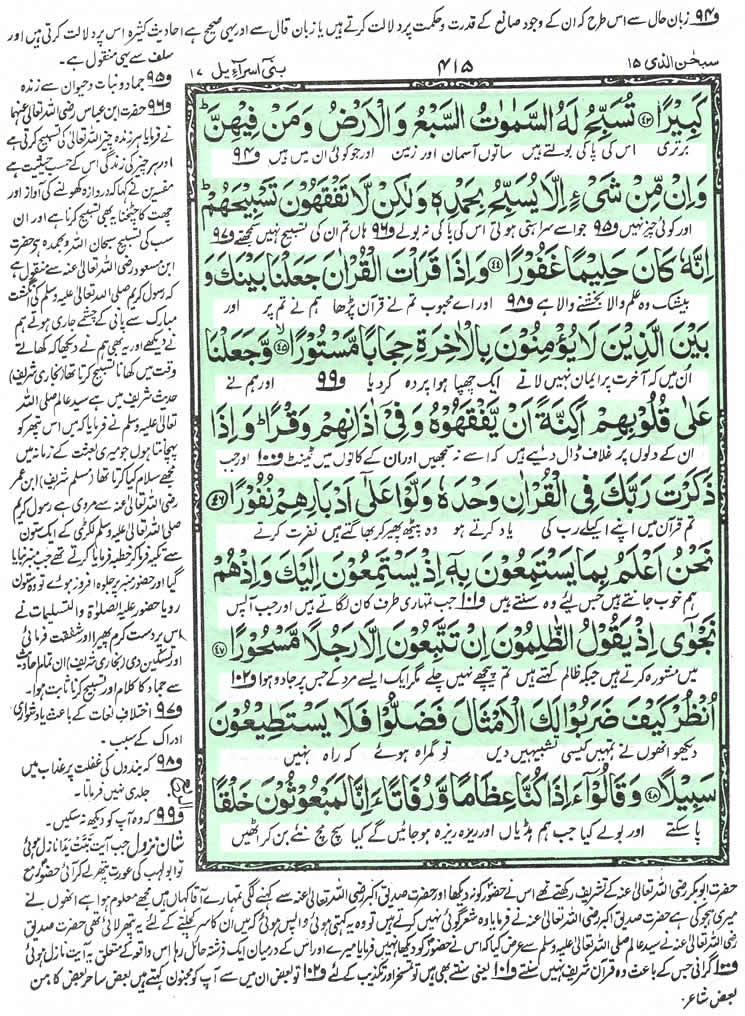 و۹۴ زبان حال سے اس طرح کہ ان کے وجود صانع کے قدرت و حکمت پر دلالت کرتے ہیں یا زبان قال سے اور یہی صحیح ہے احادیث کثیرہ اس پر دلالت کرتی ہیں اور
سلف سے یہی منقول ہے۔
سبحٰن الذی ۱۵
۴۱۵
بنی اسرآءیل ۱۷
كَبِيْرًا ﴿٤٣﴾ تُسَبِّحُ لَهُ السَّمٰوٰتُ السَّبْعُ وَالْاَرْضُ وَمَنْ فِيْهِنَّ ؕ
برتری اس کی پاکی بولتے ہیں ساتوں آسمان اور زمین اور جو کوئی ان میں ہیں و۹۴
وَاِنْ مِّنْ شَيْءٍ اِلَّا يُسَبِّحُ بِحَمْدِهٖ وَلٰكِنْ لَّا تَفْقَهُوْنَ تَسْبِيْحَهُمْ ؕ
اور کوئی چیز نہیں و۹۵ جو اسے سراہتی ہوئی اس کی پاکی نہ بولے و۹۶ ہاں تم ان کی تسبیح نہیں سمجھتے و۹۷
اِنَّهٗ كَانَ حَلِيْمًا غَفُوْرًا ﴿٤٤﴾ وَاِذَا قَرَاْتَ الْقُرْاٰنَ جَعَلْنَا بَيْنَكَ وَ
بیشک وہ حلم والا بخشنے والا ہے و۹۸ اور اے محبوب تم نے قرآن پڑھا ہم نے تم پر اور
بَيْنَ الَّذِيْنَ لَا يُؤْمِنُوْنَ بِالْاٰخِرَةِ حِجَابًا مَّسْتُوْرًا ﴿٤٥﴾ وَّجَعَلْنَا
اُن میں کہ آخرت پر ایمان نہیں لاتے ایک چھپا ہوا پردہ کردیا و۹۹ اور ہم نے
عَلٰى قُلُوْبِهِمْ اَكِنَّةً اَنْ يَّفْقَهُوْهُ وَفِيْٓ اٰذَانِهِمْ وَقْرًا ؕ وَاِذَا
ان کے دلوں پر غلاف ڈال دیے ہیں کہ اسے نہ سمجھیں اور ان کے کانوں میں ٹینٹ و۱۰۰ اور جب
ذَكَرْتَ رَبَّكَ فِي الْقُرْاٰنِ وَحْدَهٗ وَلَّوْا عَلٰٓى اَدْبَارِهِمْ نُفُوْرًا ﴿٤٦﴾
تم قرآن میں اپنے اکیلے رب کی یاد کرتے ہو وہ پیٹھ پھیر کر بھاگتے ہیں نفرت کرتے
نَحْنُ اَعْلَمُ بِمَا يَسْتَمِعُوْنَ بِهٖٓ اِذْ يَسْتَمِعُوْنَ اِلَيْكَ وَاِذْ هُمْ
ہم خوب جانتے ہیں جس لیے وہ سنتے ہیں و۱۰۱ جب تمہاری طرف کان لگاتے ہیں اور جب آپس
نَجْوٰٓى اِذْ يَقُوْلُ الظّٰلِمُوْنَ اِنْ تَتَّبِعُوْنَ اِلَّا رَجُلًا مَّسْحُوْرًا ﴿٤٧﴾
میں مشورہ کرتے ہیں جبکہ ظالم کہتے ہیں تم پیچھے نہیں چلے مگر ایک ایسے مرد کے جس پر جادو ہوا و۱۰۲
اُنْظُرْ كَيْفَ ضَرَبُوْا لَكَ الْاَمْثَالَ فَضَلُّوْا فَلَا يَسْتَطِيْعُوْنَ
دیکھو انھوں نے تمہیں کیسی تشبیہیں دیں تو گمراہ ہوئے کہ راہ نہیں
سَبِيْلًا ﴿٤٨﴾ وَقَالُوْٓا ءَاِذَا كُنَّا عِظَامًا وَّرُفَاتًا ءَاِنَّا لَمَبْعُوْثُوْنَ خَلْقًا
پا سکتے اور بولے کیا جب ہم ہڈیاں اور ریزہ ریزہ ہوجائیں گے کیا سچ مچ نئے بن کر اٹھیں
و۹۵ جماد و نبات و حیوان سے زندہ
و۹۶ حضرت ابن عباس رضی اللہ تعالیٰ عنہما
نے فرمایا ہر زندہ چیز اللہ تعالیٰ کی تسبیح کرتی ہے
اور ہر چیز کی زندگی اس کے حسب حیثیت ہے
مفسرین نے کہا کہ دروازہ کھولنے کی آواز اور
چھت کا چٹخنا یہ بھی تسبیح کرنا ہے اور ان
سب کی تسبیح سبحان اللہ وبحمدہ ہے حضرت
ابن مسعود رضی اللہ تعالیٰ عنہ سے منقول ہے
کہ رسول کریم صلی اللہ تعالیٰ علیہ وسلم کی انگشت
مبارک سے پانی کے چشمے جاری ہوتے ہم
نے دیکھے اور یہ بھی ہم نے دیکھا کہ کھاتے
وقت میں کھانا تسبیح کرتا تھا (بخاری شریف)
حدیث شریف میں ہے سید عالم صلی اللہ
تعالیٰ علیہ وسلم نے فرمایا کہ میں اس پتھر کو
پہچانتا ہوں جو میری بعثت کے زمانہ میں
مجھے سلام کیا کرتا تھا (مسلم شریف) ابن عمر
رضی اللہ تعالیٰ عنہ سے مروی ہے رسول کریم
صلی اللہ تعالیٰ علیہ وسلم لکڑی کے ایک ستون
سے تکیہ فرما کر خطبہ فرمایا کرتے تھے جب منبر بنایا
گیا اور حضور منبر پر جلوہ افروز ہوئے تو وہ ستون
رویا حضور علیہ الصلوٰۃ والتسلیمات نے
اس پر دست کرم پھیرا اور شفقت فرمائی
اور تسکین دی (بخاری شریف) ان تمام احادیث
سے جماد کا کلام اور تسبیح کرنا ثابت ہوا۔
و۹۷ اختلاف لغات کے باعث یا دشواری
ادراک کے سبب۔
و۹۸ کہ بندوں کی غفلت پر عذاب میں
جلدی نہیں فرماتا۔
و۹۹ کہ وہ آپ کو دیکھ نہ سکیں۔
شان نزول جب آیت تَبَّتْ یَدَا نازل ہوئی
تو ابولہب کی عورت پتھر لے کر آئی حضور مع
حضرت ابوبکر رضی اللہ تعالیٰ عنہ کے تشریف رکھتے تھے اس نے حضور کو نہ دیکھا اور حضرت صدیق اکبر رضی اللہ تعالیٰ عنہ سے کہنے لگی تمہارے آقا کہاں ہیں مجھے معلوم ہوا ہے انھوں نے
میری ہجو کی ہے حضرت صدیق اکبر رضی اللہ تعالیٰ عنہ نے فرمایا وہ شعر گوئی نہیں کرتے ہیں تو وہ یہ کہتی ہوئی واپس ہوئی کہ میں ان کا سر کچلنے کے لئے یہ پتھر لائی تھی حضرت صدیق
رضی اللہ تعالیٰ عنہ نے سید عالم صلی اللہ تعالیٰ علیہ وسلم سے عرض کیا کہ اس نے حضور کو دیکھا نہیں فرمایا میرے اور اس کے درمیان ایک فرشتہ حائل رہا اس واقعہ کے متعلق یہ آیت نازل ہوئی
و۱۰۰ گرانی جس کے باعث وہ قرآن شریف نہیں سنتے و۱۰۱ یعنی سنتے بھی ہیں تو تمسخر اور تکذیب کے لئے و۱۰۲ تو بعض ان میں سے آپ کو مجنون کہتے ہیں بعض ساحر بعض کاہن
بعض شاعر۔